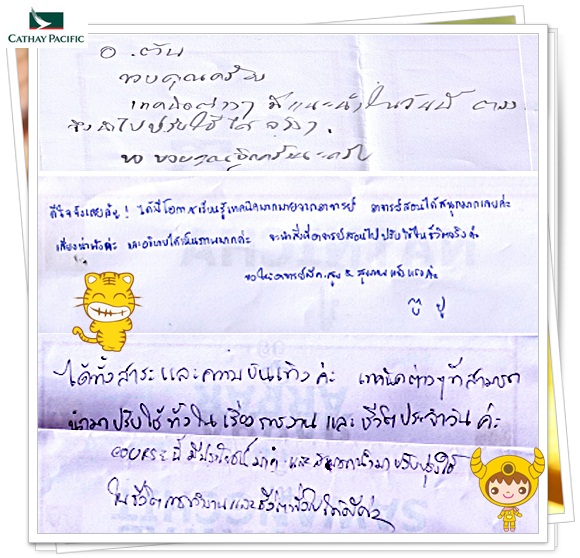 CATHAY PACIFIC
อ. ตัน
ขอบคุณครับ
เทคนิคต่างๆ ที่แนะนำในวันนี้
นำไปปรับใช้ได้จริงๆ
ขอขอบคุณอีกครั้งนะครับ
ดีใจจังเลยค่ะ! ได้มีโอกาสเรียนรู้เทคนิคมากมายจากอาจารย์ อาจารย์สอนได้สนุกมากเลยค่ะ
เสียงน่าฟังค่ะ และอธิบายได้เห็นภาพมากค่ะ จะนำสิ่งที่อาจารย์สอนไปปรับใช้ในชีวิตจริงค่ะ
ขอให้อาจารย์มีความสุข & สุขภาพแข็งแรงค่ะ
ได้ทั้งสาระและความบันเทิงค่ะ เทคนิคต่างๆที่สามารถ
นำมาปรับใช้ทั้งในเรื่องการงาน และชีวิตประจำวันค่ะ
course นี้ มีประโยชน์มากๆ และสามารถนำมาปรับปรุงใช้
ในชีวิตการทำงานและชีวิตทั่วไปได้ดีค่ะ